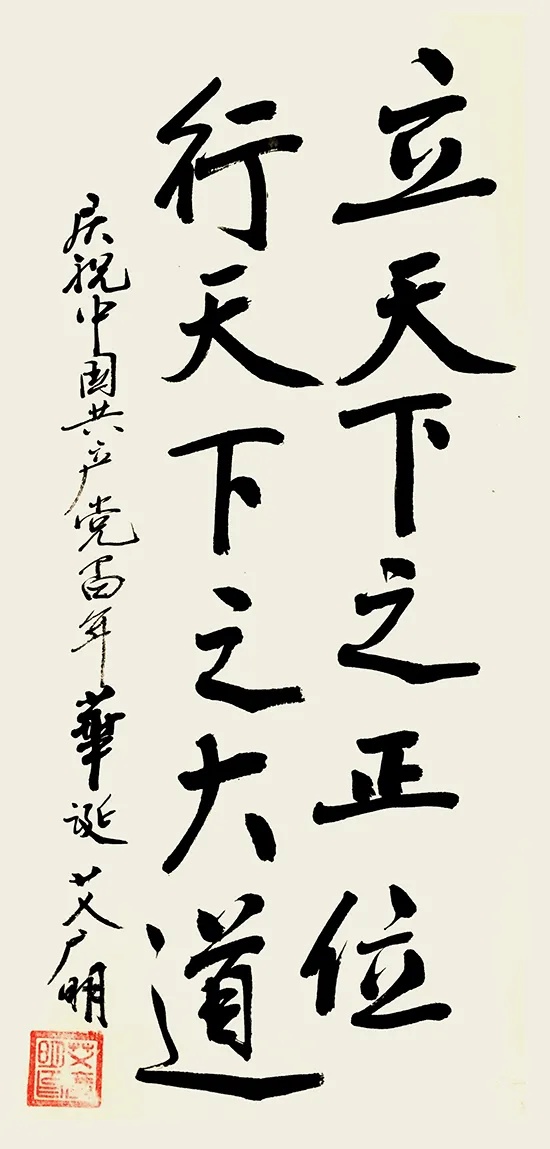 立天下之正位
行天下之大道
庆祝中国共产党百年華诞 艾广明